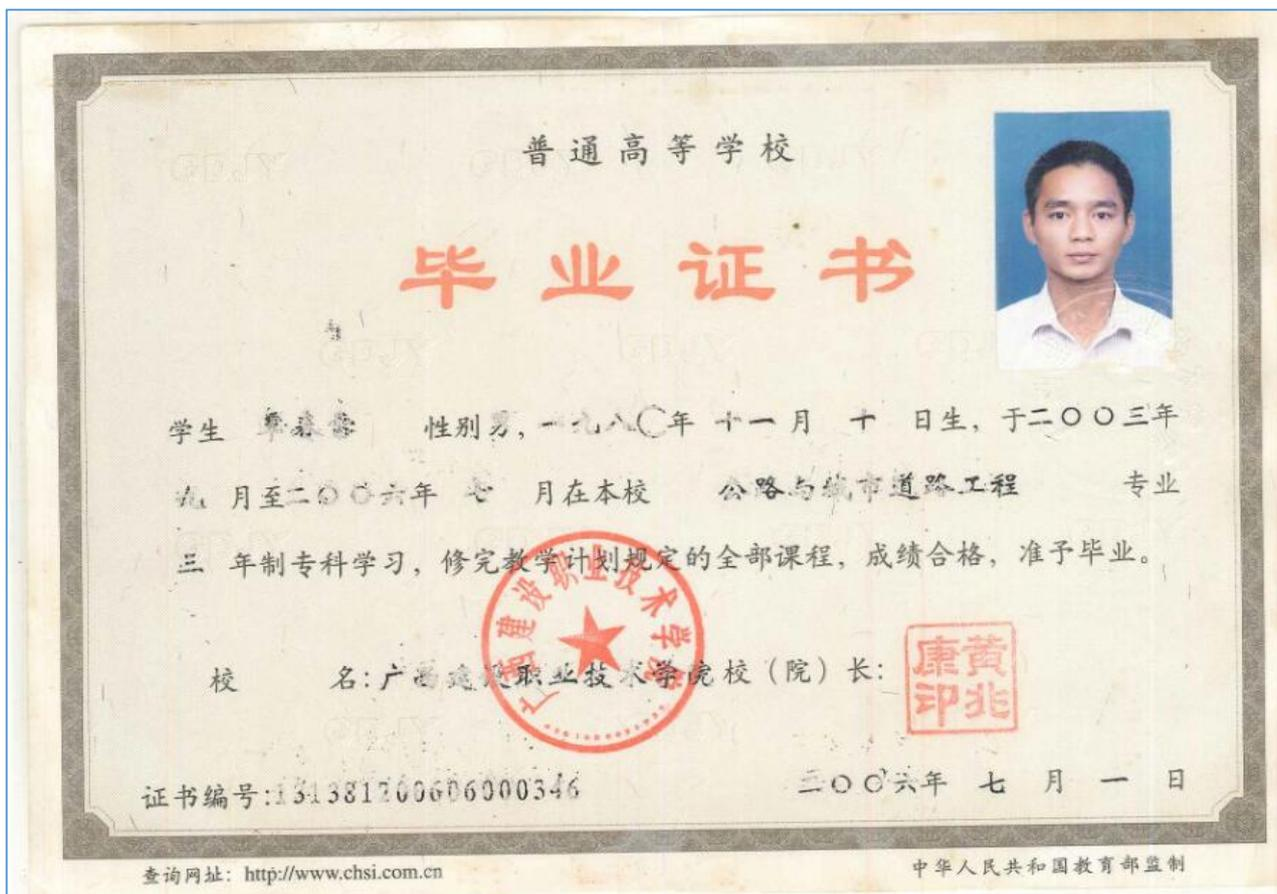 普通高等学校
毕业证书
学生 性别男，一九八〇年 十一月 十 日生，于二〇〇三年
九 月至二〇〇六年 七 月在本校 公路与城市道路工程 专业
三 年制专科学习，修完教学计划规定的全部课程，成绩合格，准予毕业。
广西建设职业技术学院
校 名：广西建设职业技术学院校（院）长：
黄北康印
证书编号：131381200606000346
二〇〇六年 七 月 一 日
查询网址：http://www.chsi.com.cn
中华人民共和国教育部监制